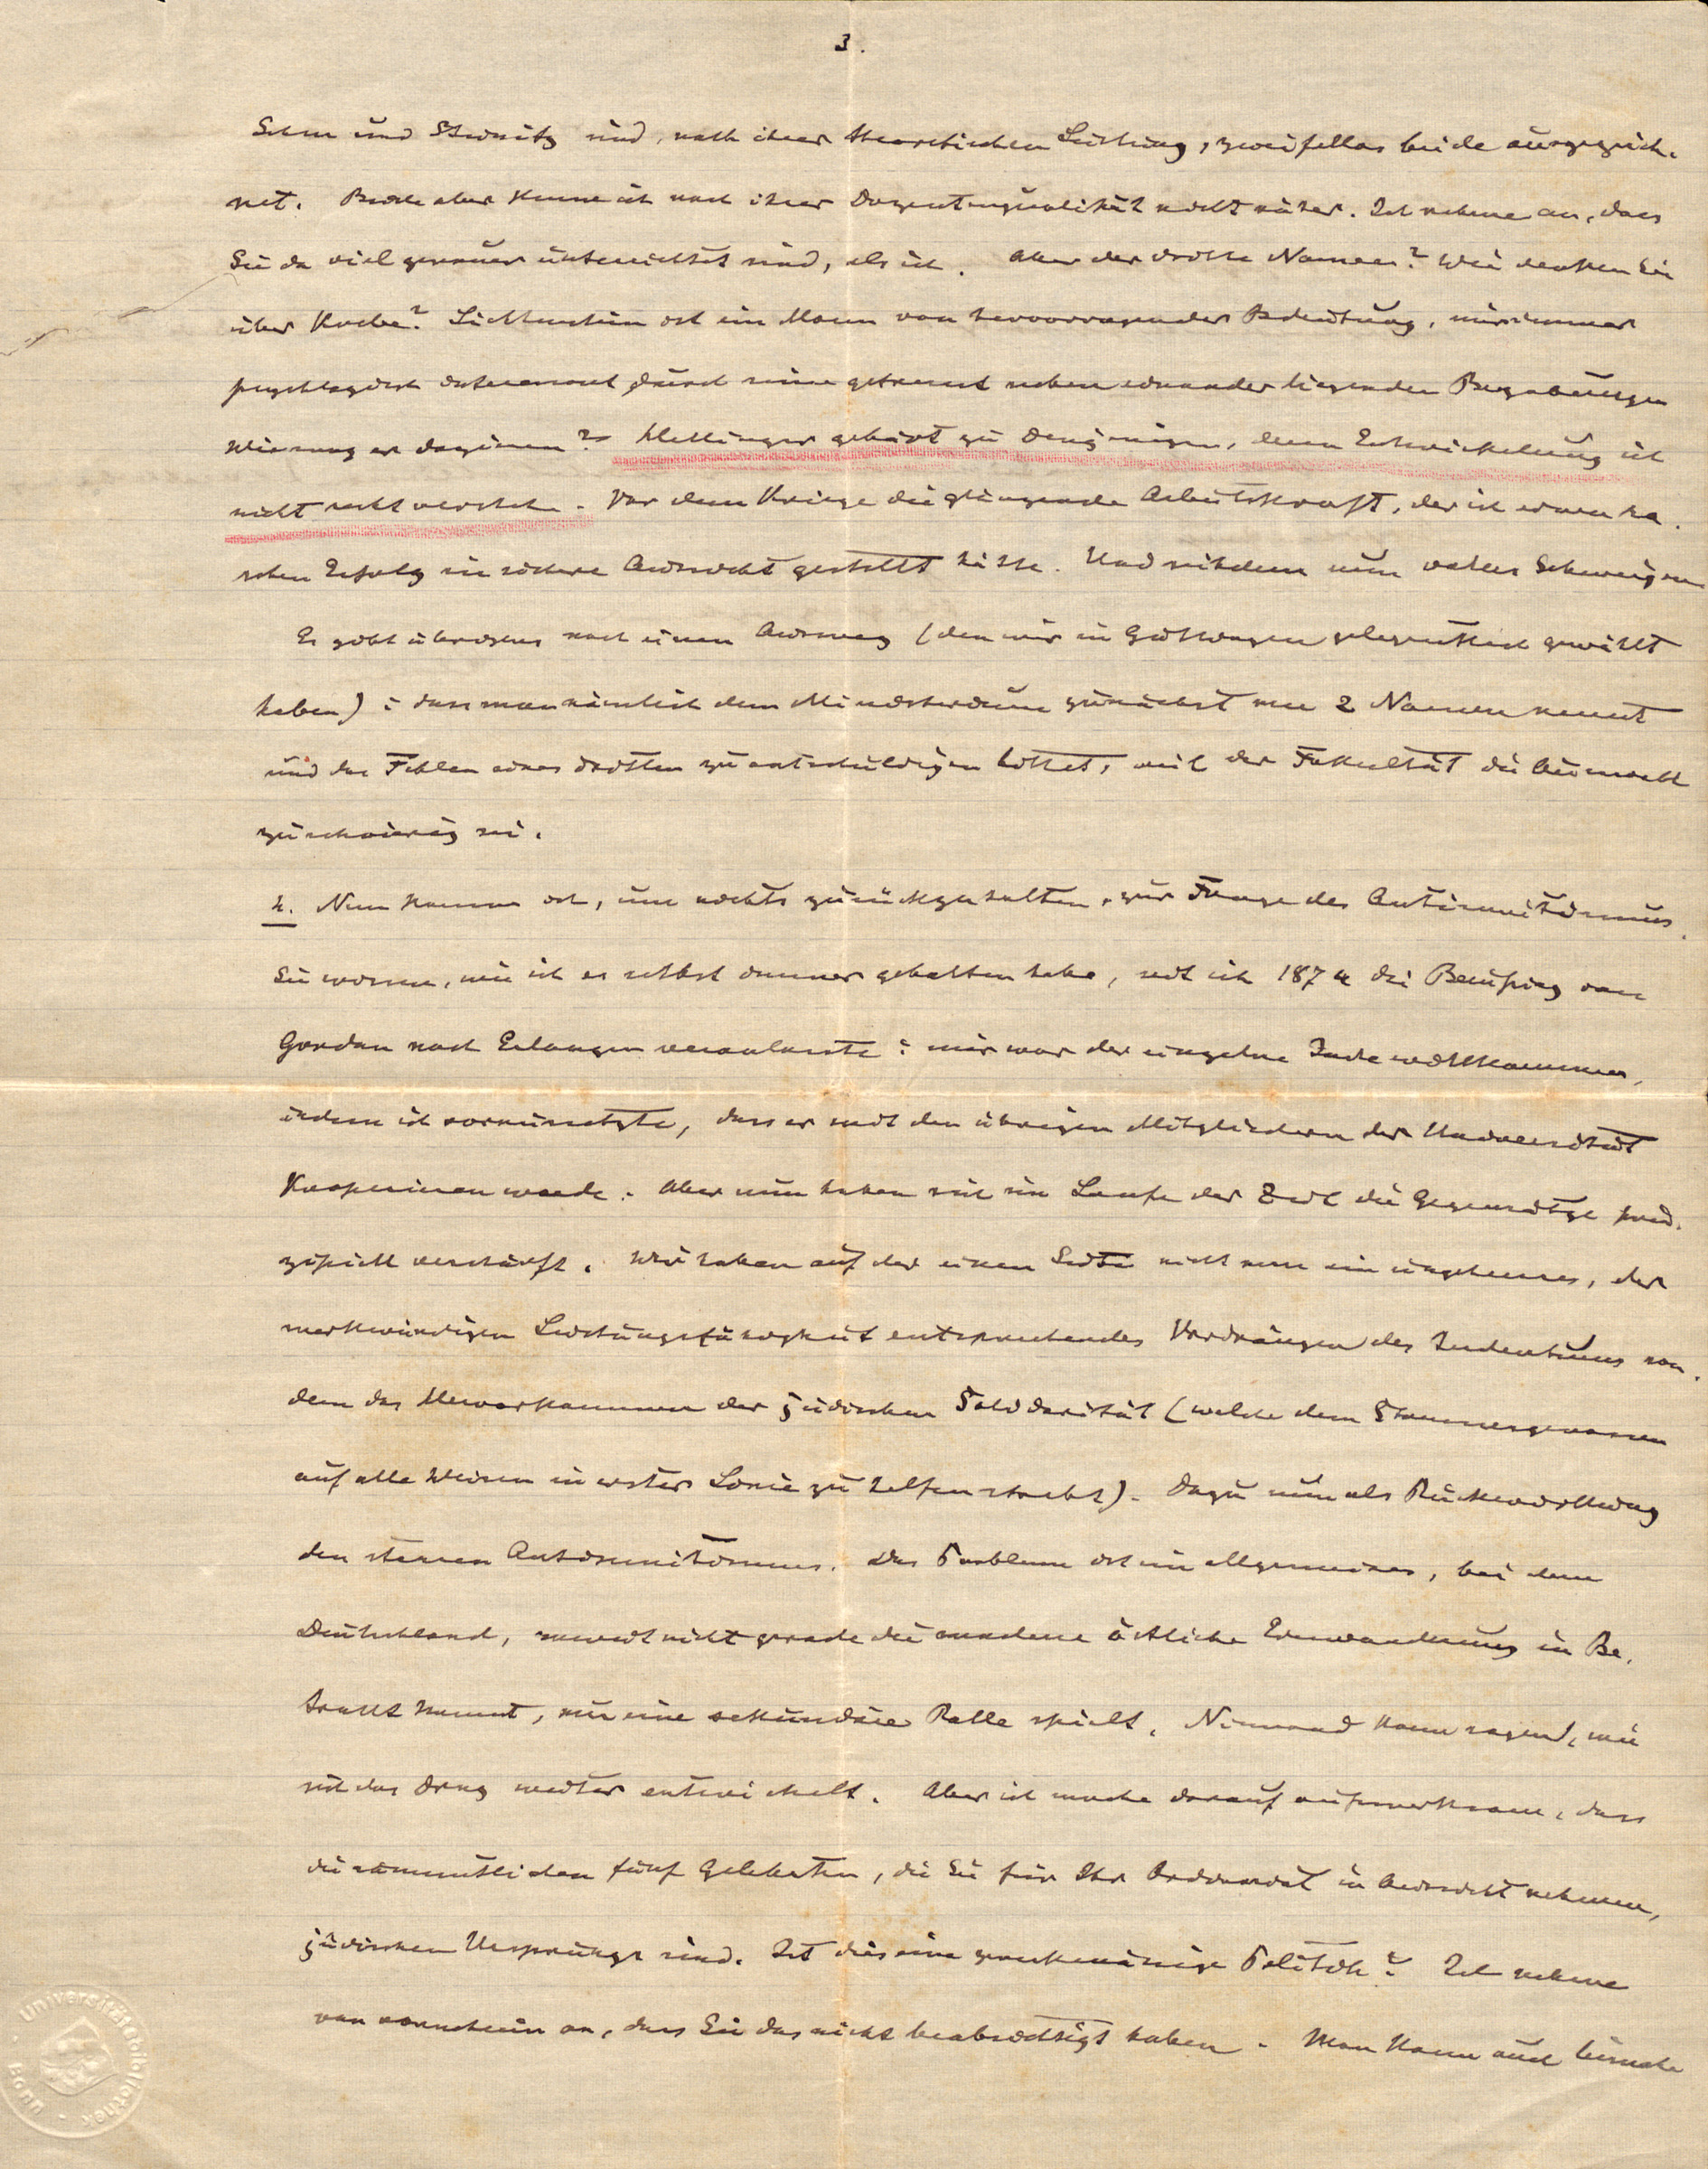 3.
Schur und Steinitz sind, nach ihrer theoretischen Leistung, zweifellos beide ausgezeich-
net. Beide aber kenne ich nach ihrer Dozentenqualität nicht näher. Ich nehme an, dass
Sie da viel genauer unterrichtet sind, als ich. Aber der dritte Namen? Wie denken Sie
über Koebe? Lichtenstein ist ein Mann von hervorragender Bedeutung, mir immer
psychlogisch interessant durch seine getrennt neben einander liegenden Begabungen
Wie mag er dozieren? Hellinger gehört zu denjenigen, deren Entwickelung ich
nicht recht verstehe. Vor dem Kriege die glänzende Arbeitskraft, der ich einen ho-
hen Erfolg in sichere Aussicht gestellt hätte. Und seitdem nun volles Schweigen
Es gibt übrigens noch einen Ausweg (den wir in Göttingen gelegentlich gewählt
haben): dass man nämlich dem Ministerium zunächst nur 2 Namen nennt
und das Fehlen eines dritten zu entschuldigen bittet, weil der Fakultät die Auswahl
zu schwierig sei.
4. Nun komme ich, um nichts zurückzuhalten, zur Frage des Antisemitismus.
Sie wissen, wie ich es selbst immer gehalten habe, seit ich 1874 die Berufung von
Gordan nach Erlangen veranlasste: mir war der einzelne Jude willkommen,
indem ich voraussetzte, dass er mit den übrigen Mitgliedern der Universität
kooperieren werde. Aber nun haben sich im Laufe der Zeit die Gegensätze prin-
zipiell verschärft. Wir haben auf der einen Seite nicht nur ein ungeheures, der
merkwürdigen Leistungsfähigkeit entsprechendes Vordrängen des Judentums son-
dern das Hervorkommen der jüdischen Solidarität (welche dem Stammesgenossen
auf alle Weisen in erster Linie zu helfen strebt). Dazu nun als Rückwirkung
den starren Antisemitismus. Das Problem ist ein allgemeines, bei dem
Deutschland, soweit nicht gerade die moderne östliche Einwanderung in Be-
tracht kommt, nur eine sekundäre Rolle spielt. Niemand kann sagen, wie
sich das Ding weiter entwickelt. Aber ich mache darauf aufmerksam, dass
die sämmtlichen fünf Gelehrten, die Sie für Ihr Ordinariat in Aussicht nehmen,
jüdischen Ursprungs sind. Ist dies eine zweckmässige Politik? Ich nehme
von vorneherein an, dass Sie das nicht beabsichtigt haben. Man kann auch beinahe
Universitätsbibliothek Bonn